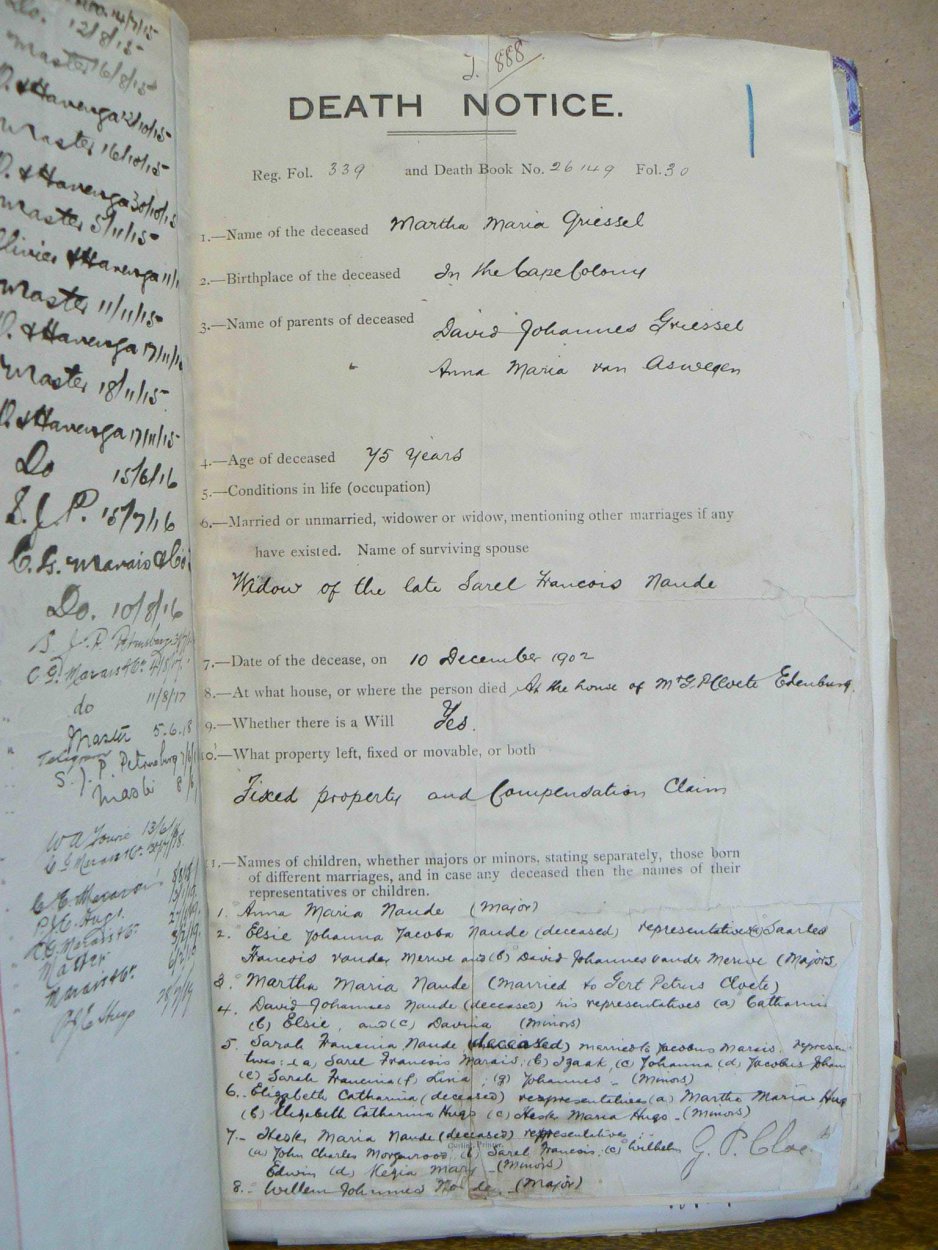 12/8/15
Master 16/8/15
Master 16/10/15
& Havenga 30/10/15
Master 5/11/15
Olivier & Havenga 11/1
Master 11/11/15
& Havenga 17/11/1
Master 18/11/15
& Havenga 17/11/15
Do 15/6/16
S. J. P. 15/7/16
C. G. Marais & Co
Do. 10/8/16
S. J. P. Petrusburg
C G Marais & Co
do 11/8/17
Master 5.6.18
Telegram
S. J. P. Petrusburg
Master 8/6
13/6/18
C G Marais & Co.
C. G. Marais
P J E Hugo
C. G. Marais & Co.
Master
Marais & Co.
P J E Hugo
J. 888
DEATH NOTICE.
Reg. Fol. 339 and Death Book No. 26149 Fol. 30
1.—Name of the deceased Martha Maria Griessel
2.—Birthplace of the deceased In the Cape Colony
3.—Name of parents of deceased David Johannes Griessel
" Anna Maria van Aswegen
4.—Age of deceased 75 Years
5.—Conditions in life (occupation)
6.—Married or unmarried, widower or widow, mentioning other marriages if any
have existed. Name of surviving spouse
Widow of the late Sarel Francois Naude
7.—Date of the decease, on 10 December 1902
8.—At what house, or where the person died At the house of Mr G. P Cloete Edenburg.
9.—Whether there is a Will Yes.
10.—What property left, fixed or movable, or both
Fixed property and Compensation Claim
11.—Names of children, whether majors or minors, stating separately, those born
of different marriages, and in case any deceased then the names of their
representatives or children.
1. Anna Maria Naude (Major)
2. Elsie Johanna Jacoba Naude (deceased) representatives (a) Saarles
Francois vander Merwe and (b) David Johannes vander Merwe (Majors
3. Martha Maria Naude (Married to Gert Petrus Cloete)
4. David Johannes Naude (deceased) his representatives (a) Catharin
(b) Elsie, and (c) Davina (Minors)
5. Sarah Francina Naude (deceased) married to Jacobus Marais. represen
tives: (a) Sarel Francois Marais, (b) Izaak, (c) Johanna (d) Jacobus Johan
(e) Sarah Francina (f) Lina, (g) Johannes - (Minors)
6. Elizabeth Catharina (deceased) representatives (a) Martha Maria Hugo
(b) Elizabeth Catharina Hugo (c) Hester Maria Hugo - (Minors)
7. Hester Maria Naude (deceased) representatives
(a) John Charles Morgenrood, (b) Sarel Francois, (c) Wilhelm
Edwin (d) Kezia Mary - (Minors)
8. Willem Johannes Naude - (Major)
G. P. Cloe